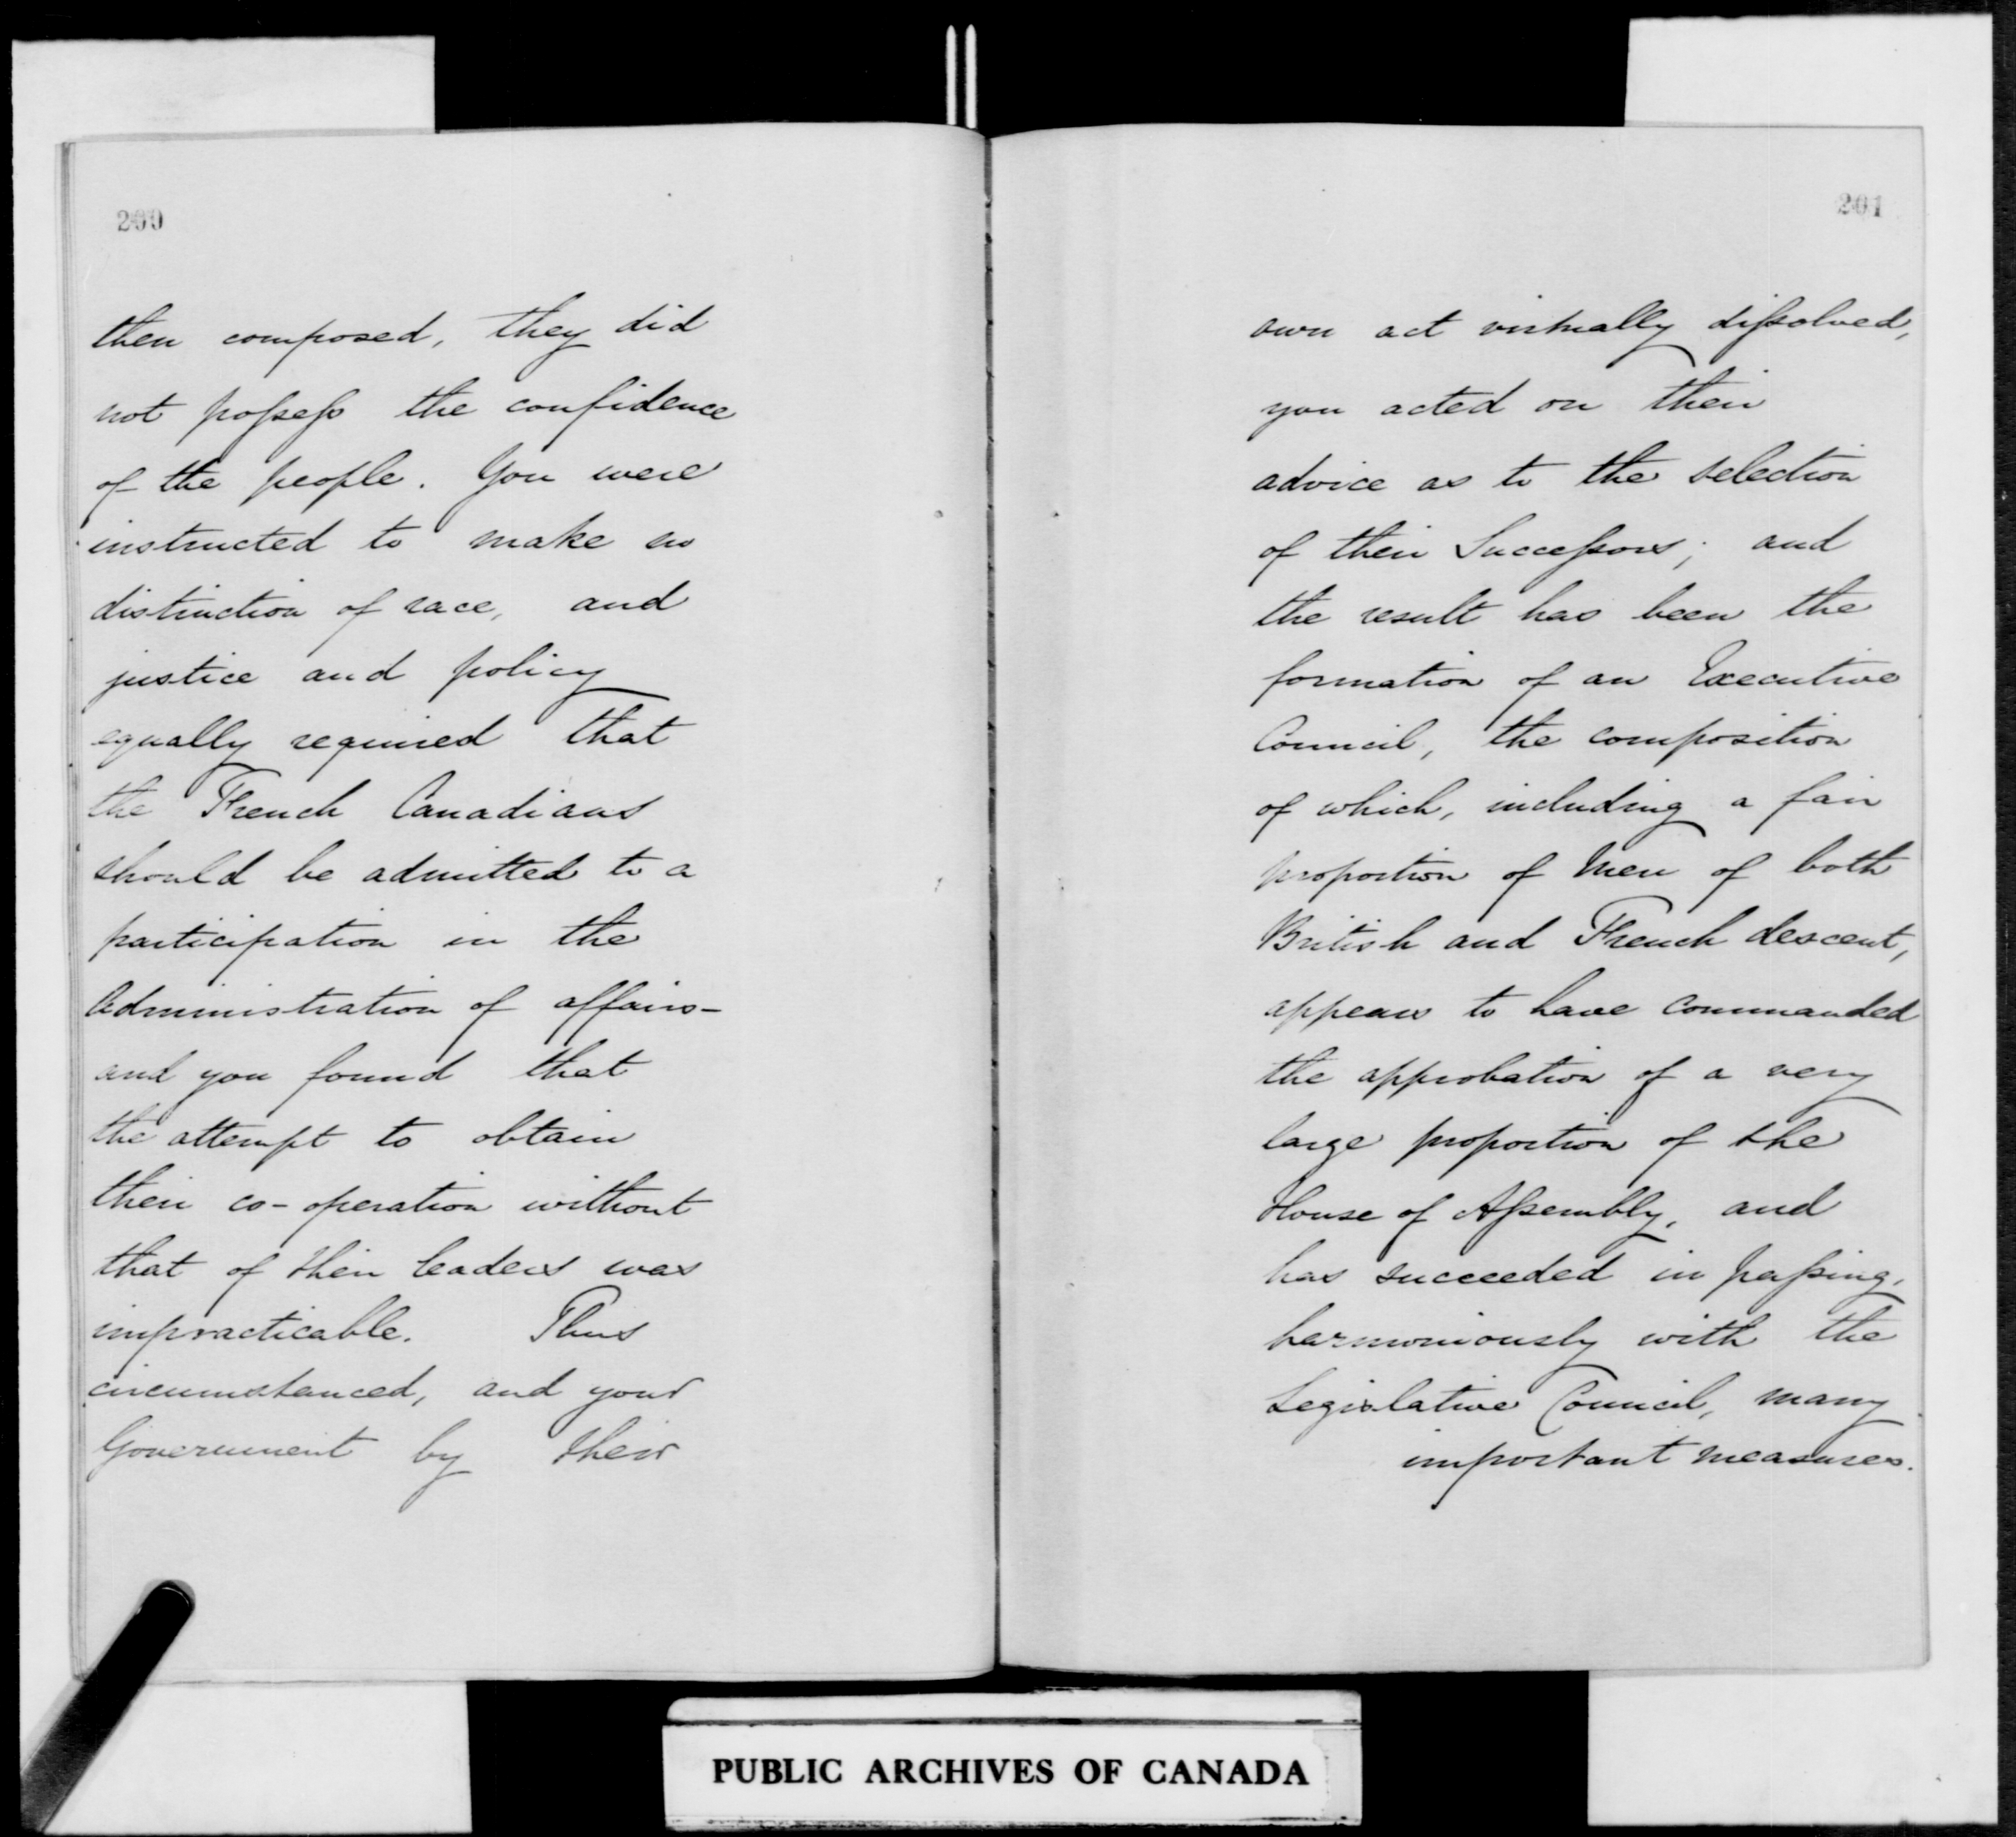 200
then composed, they did
not possess the confidence
of the people. You were
instructed to make no
distinction of race, and
justice and policy
equally required that
the French Canadians
should be admitted to a
participation in the
Administration of affairs-
and you found that
the attempt to obtain
their co-operation without
that of their leaders was
impracticable. Thus
circumstanced, and your
Government by their
201
own act virtually dissolved,
you acted on their
advice as to the selection
of their Successors; and
the result has been the
formation of an Executive
Council, the composition
of which, including a fair
proportion of Men of both
British and French descent,
appears to have commanded
the approbation of a very
large proportion of the
House of Assembly, and
has succeeded in passing,
harmoniously with the
Legislative Council, many
important measures.
PUBLIC ARCHIVES OF CANADA